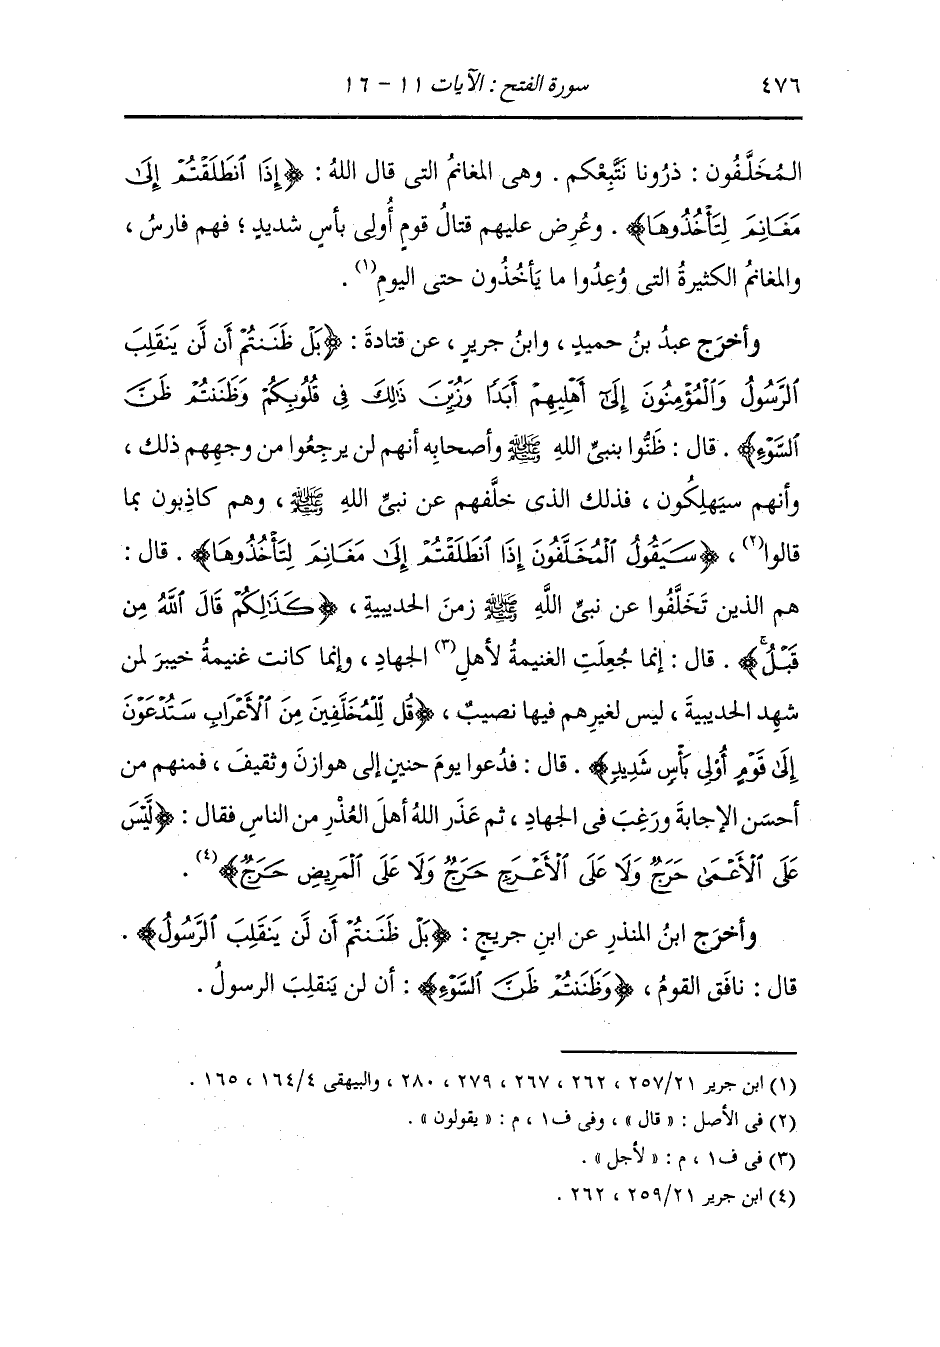 ٤٧٦ سورة الفتح : الآيات ١١ - ١٦
المُخَلَّفُون : ذرُونا نَتَّبِعْكم . وهى المغانمُ التى قال اللهُ : ﴿إِذَا ٱنطَلَقْتُمْ إِلَىٰ
مَغَانِمَ لِتَأْخُذُوهَا﴾ . وعُرِض عليهم قتالُ قومٍ أُولِى بأسٍ شديدٍ ؛ فهم فارسُ ،
والمغانمُ الكثيرةُ التى وُعِدُوا ما يَأخُذُون حتى اليومِ(١) .
وأخرَج عبدُ بنُ حميدٍ ، وابنُ جريرٍ ، عن قتادةَ : ﴿بَلْ ظَنَنتُمْ أَن لَّن يَنقَلِبَ
ٱلرَّسُولُ وَٱلْمُؤْمِنُونَ إِلَىٰٓ أَهْلِيهِمْ أَبَدًا وَزُيِّنَ ذَٰلِكَ فِى قُلُوبِكُمْ وَظَنَنتُمْ ظَنَّ
ٱلسَّوْءِ﴾ . قال : ظَنُّوا بنبىِّ اللهِ ﷺ وأصحابِه أنهم لن يرجِعُوا من وجهِهم ذلك ،
وأنهم سيَهلِكُون ، فذلك الذى خلَّفهم عن نبىِّ اللهِ ﷺ ، وهم كاذِبون بما
قالوا(٢) ، ﴿سَيَقُولُ ٱلْمُخَلَّفُونَ إِذَا ٱنطَلَقْتُمْ إِلَىٰ مَغَانِمَ لِتَأْخُذُوهَا﴾ . قال :
هم الذين تَخَلَّفُوا عن نبىِّ اللَّهِ ﷺ زمنَ الحديبيةِ ، ﴿كَذَٰلِكُمْ قَالَ ٱللَّهُ مِن
قَبْلُ﴾ . قال : إنما جُعِلَتِ الغنيمةُ لأهلِ(٣) الجهادِ ، وإنما كانت غنيمةُ خيبرَ لمن
شهِد الحديبيةَ ، ليس لغيرِهم فيها نصيبٌ ، ﴿قُل لِّلْمُخَلَّفِينَ مِنَ ٱلْأَعْرَابِ سَتُدْعَوْنَ
إِلَىٰ قَوْمٍ أُوْلِى بَأْسٍ شَدِيدٍ﴾ . قال : فدُعوا يومَ حنينٍ إلى هوازنَ وثقيفَ ، فمنهم من
أحسَن الإجابةَ ورَغِبَ فى الجهادِ ، ثم عذَر اللهُ أهلَ العُذْرِ من الناسِ فقال : ﴿لَّيْسَ
عَلَى ٱلْأَعْمَىٰ حَرَجٌ وَلَا عَلَى ٱلْأَعْرَجِ حَرَجٌ وَلَا عَلَى ٱلْمَرِيضِ حَرَجٌ﴾(٤) .
وأخرَج ابنُ المنذرِ عن ابنِ جريجٍ : ﴿بَلْ ظَنَنتُمْ أَن لَّن يَنقَلِبَ ٱلرَّسُولُ﴾ .
قال : نافَق القومُ ، ﴿وَظَنَنتُمْ ظَنَّ ٱلسَّوْءِ﴾ : أن لن يَنقلِبَ الرسولُ .
(١) ابن جرير ٢٥٧/٢١ ، ٢٦٢ ، ٢٦٧ ، ٢٧٩ ، ٢٨٠ ، والبيهقى ١٦٤/٤ ، ١٦٥ .
(٢) فى الأصل : « قال » ، وفى ف١ ، م : « يقولون » .
(٣) فى ف١ ، م : « لأجل » .
(٤) ابن جرير ٢٥٩/٢١ ، ٢٦٢ .